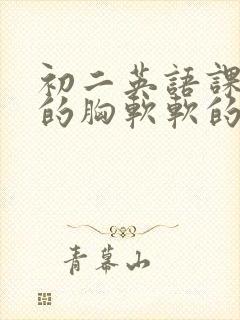 初二英語課
的胸軟軟的
青幕山